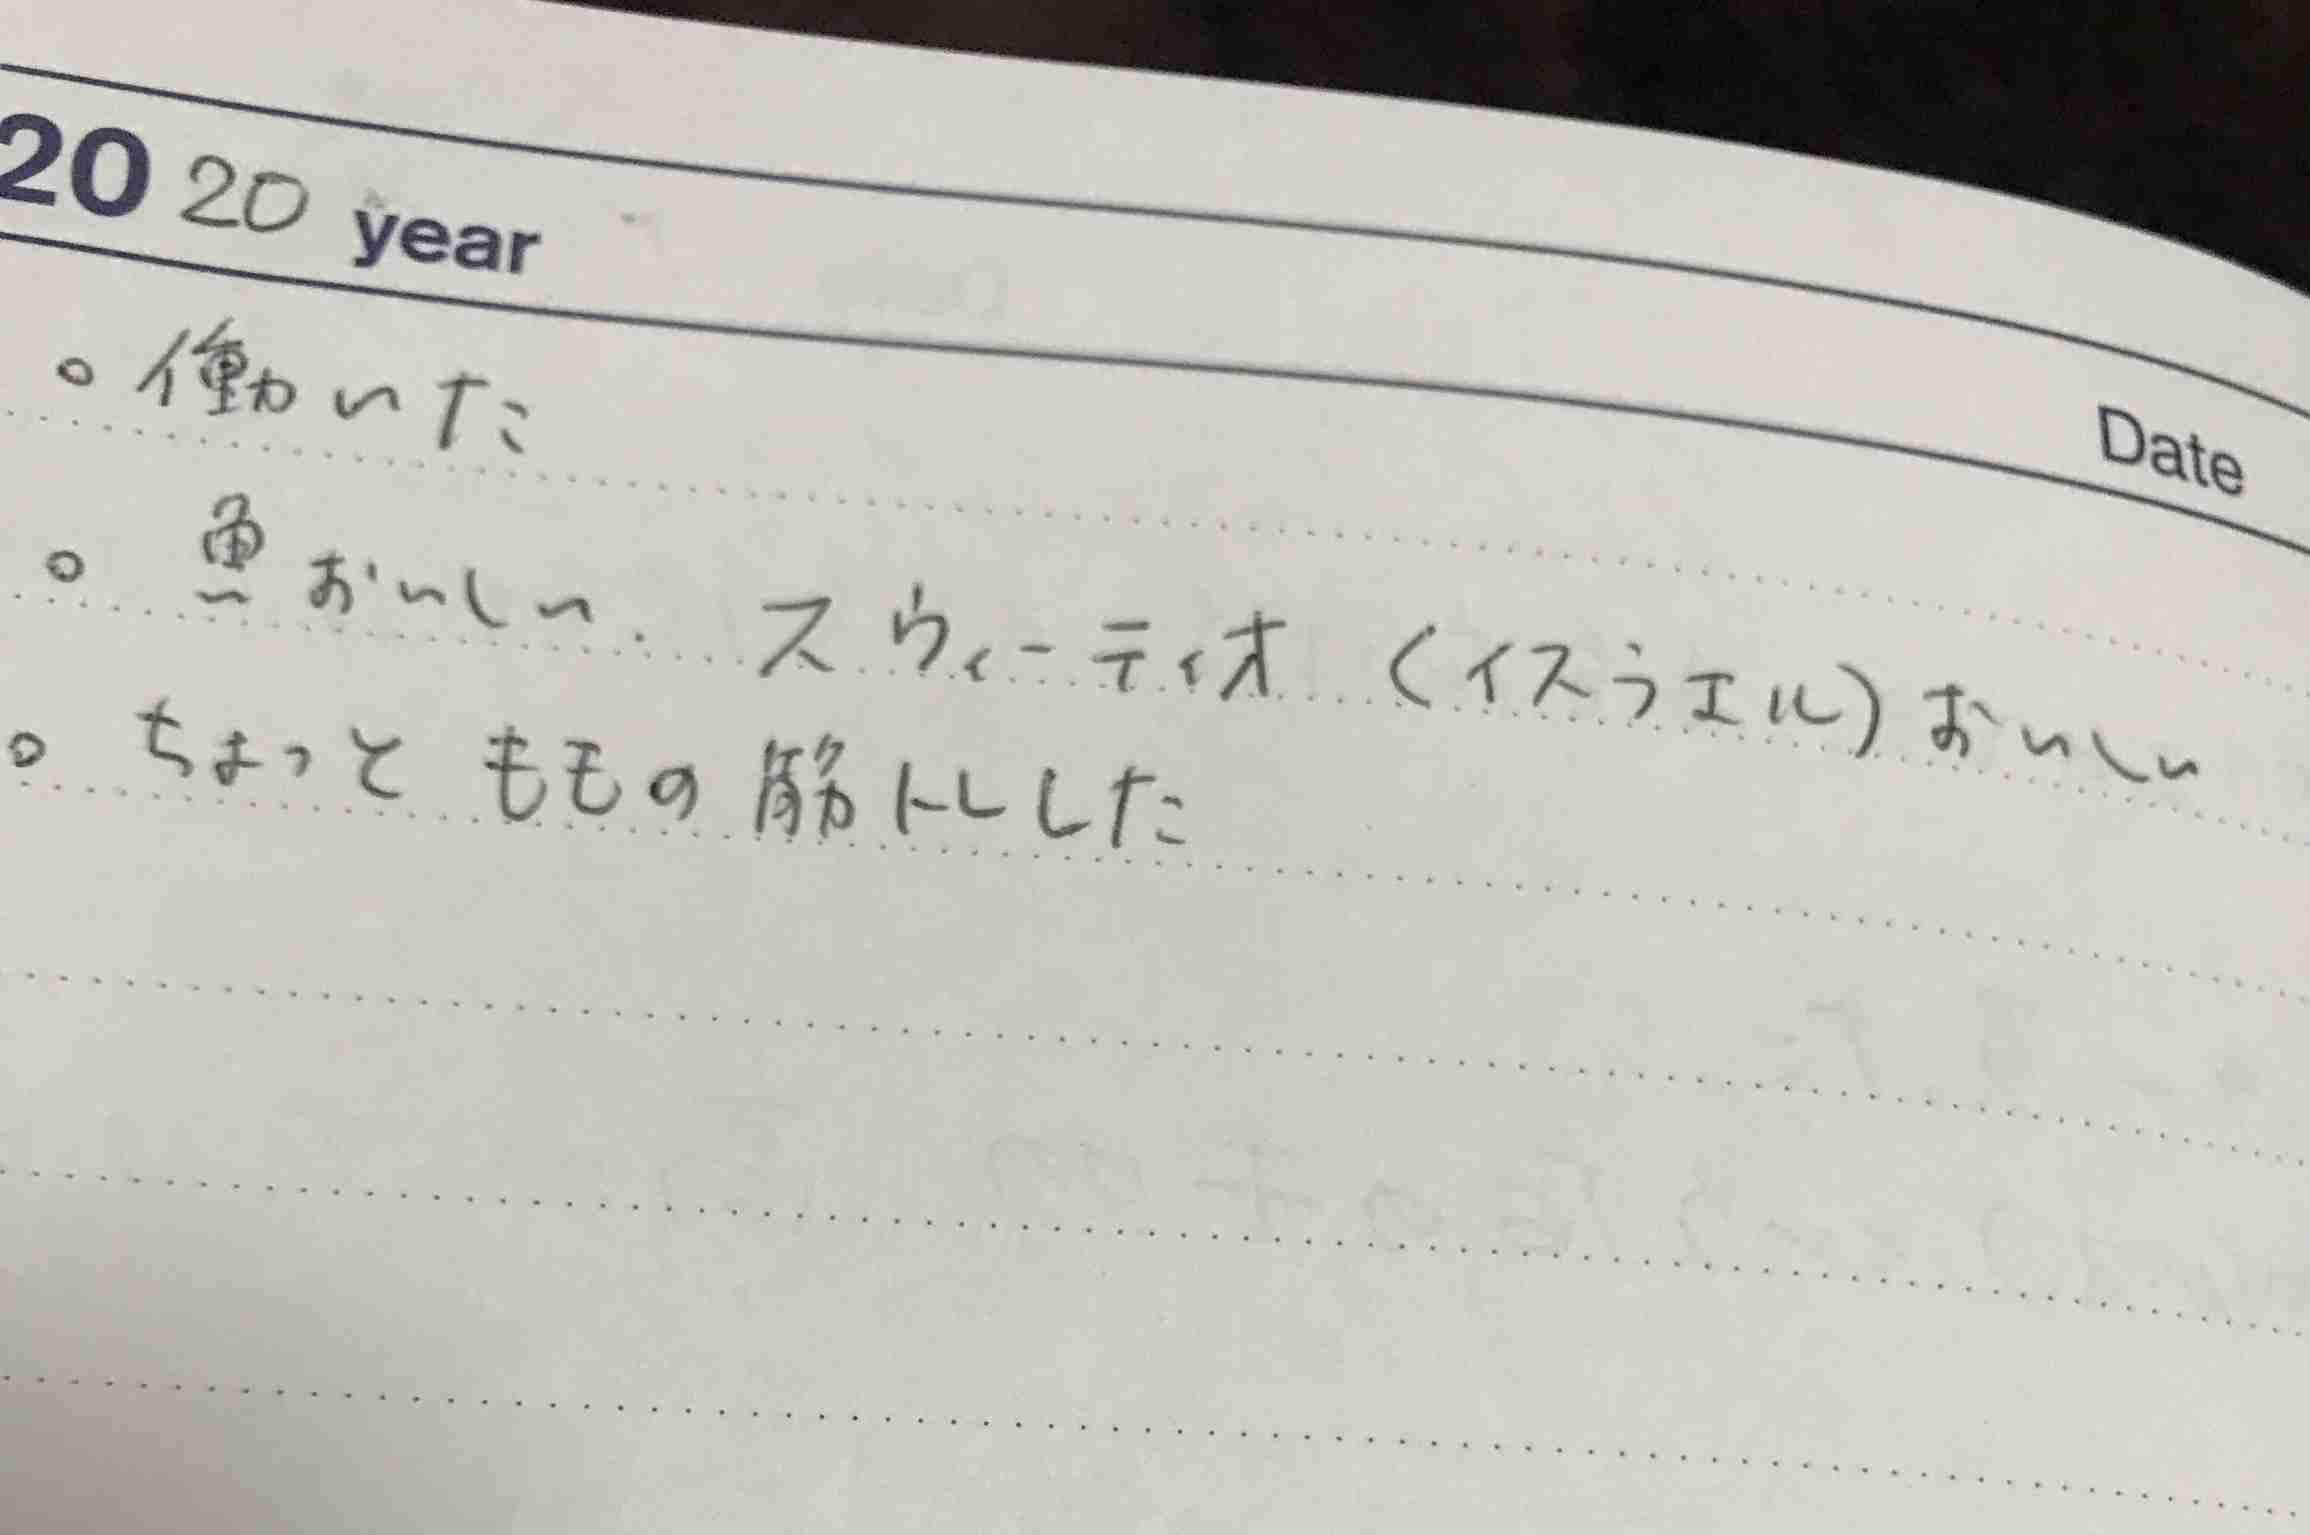 2020 year
Date
○ 働いた
○ 魚おいしい. スウィーティオ (イスラエル) おいしい
○ ちょっと ももの筋トレした